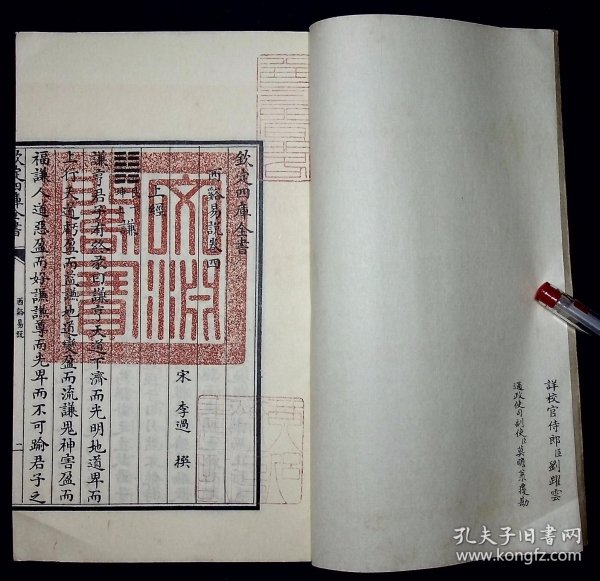 詳校官侍郎臣劉躍雲
通政使司副使臣莫瞻菉覆勘
欽定四庫全書
西谿易說卷四
宋 李過 撰
上經
謙
謙亨君子有終彖曰謙亨天道下濟而光明地道卑而
上行天道虧盈而益謙地道變盈而流謙鬼神害盈而
福謙人道惡盈而好謙謙尊而光卑而不可踰君子之
欽定四庫全書
西谿易說
文淵閣寶
孔夫子旧书网
www.kongfz.com